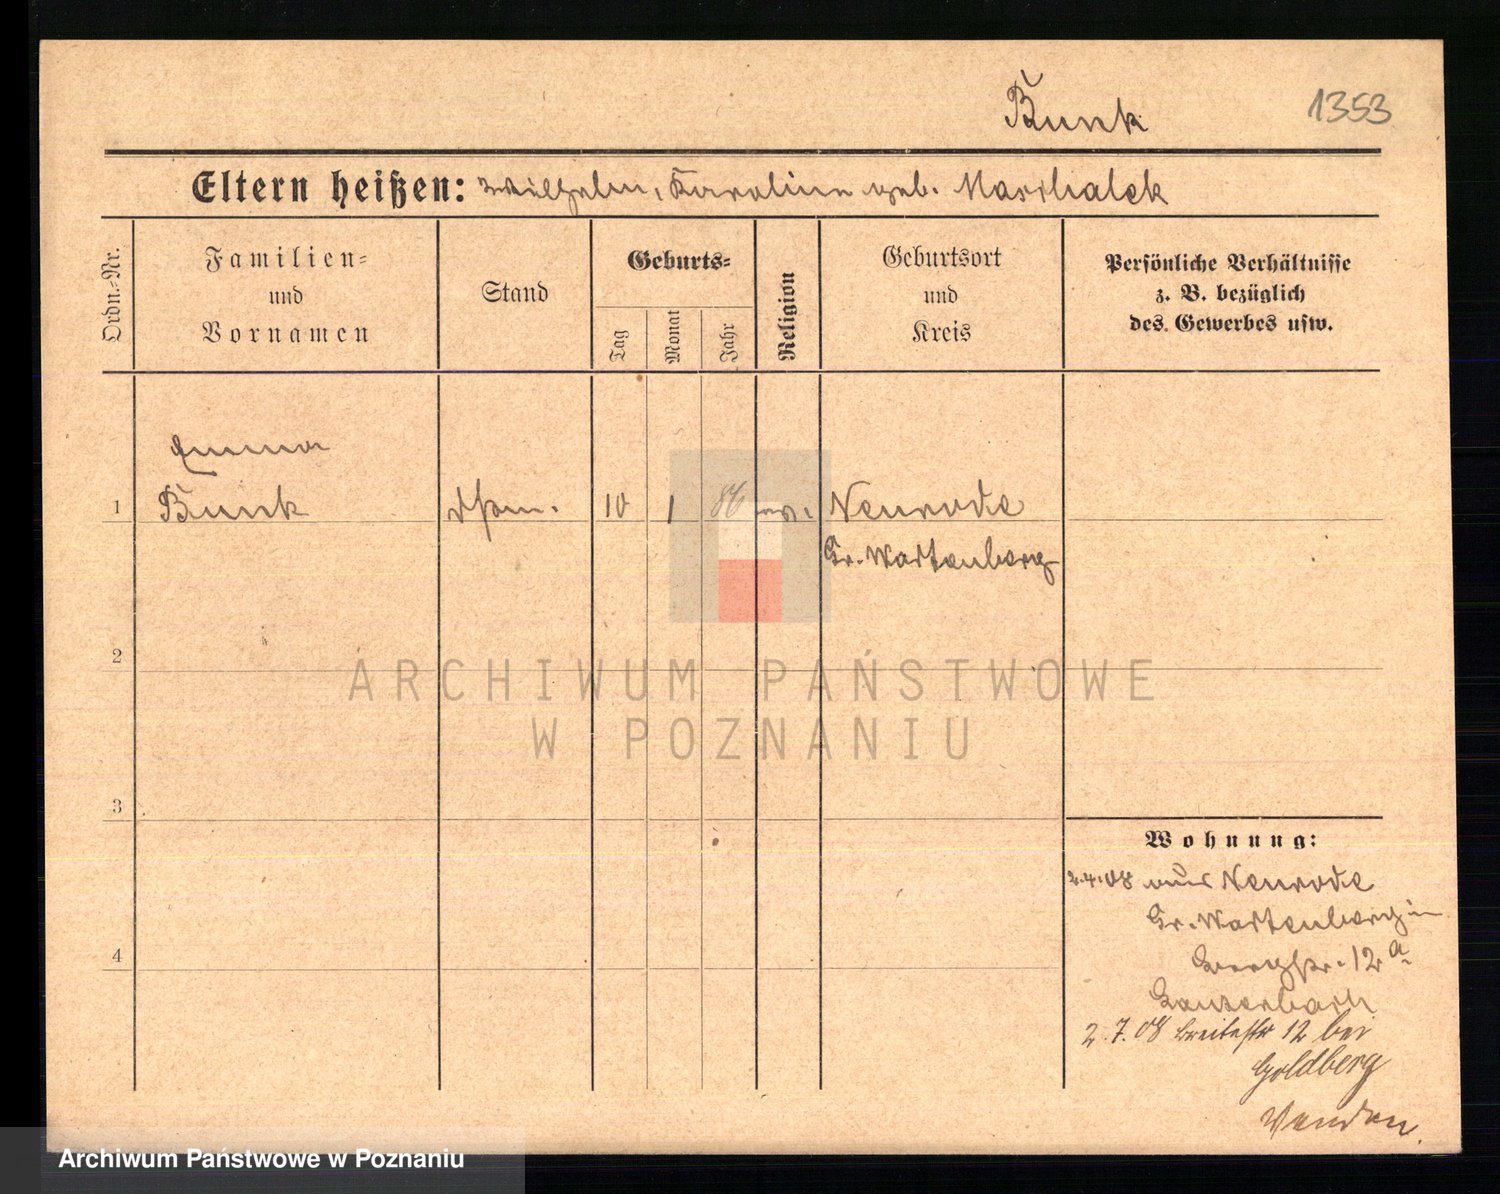 Bunk 1353
Eltern heißen: Wilhelm, Karoline geb. Maschalek
Ordn.-Nr.
Familien-
und
Vornamen
Stand
Geburts-
Tag
Monat
Jahr
Religion
Geburtsort
und
Kreis
Persönliche Verhältnisse
z. B. bezüglich
des Gewerbes usw.
Emma
1 Bunk 10 1 86 ev. Neurode
Gr. Wartenberg
2
ARCHIWUM PAŃSTWOWE
W POZNANIU
3
Wohnung:
2.4.08 aus Neurode
Gr. Wartenberg in
Bergstr. 12a
2.7.08 Breitestr 12 bei
Goldberg
Wenden.
4
Archiwum Państwowe w Poznaniu